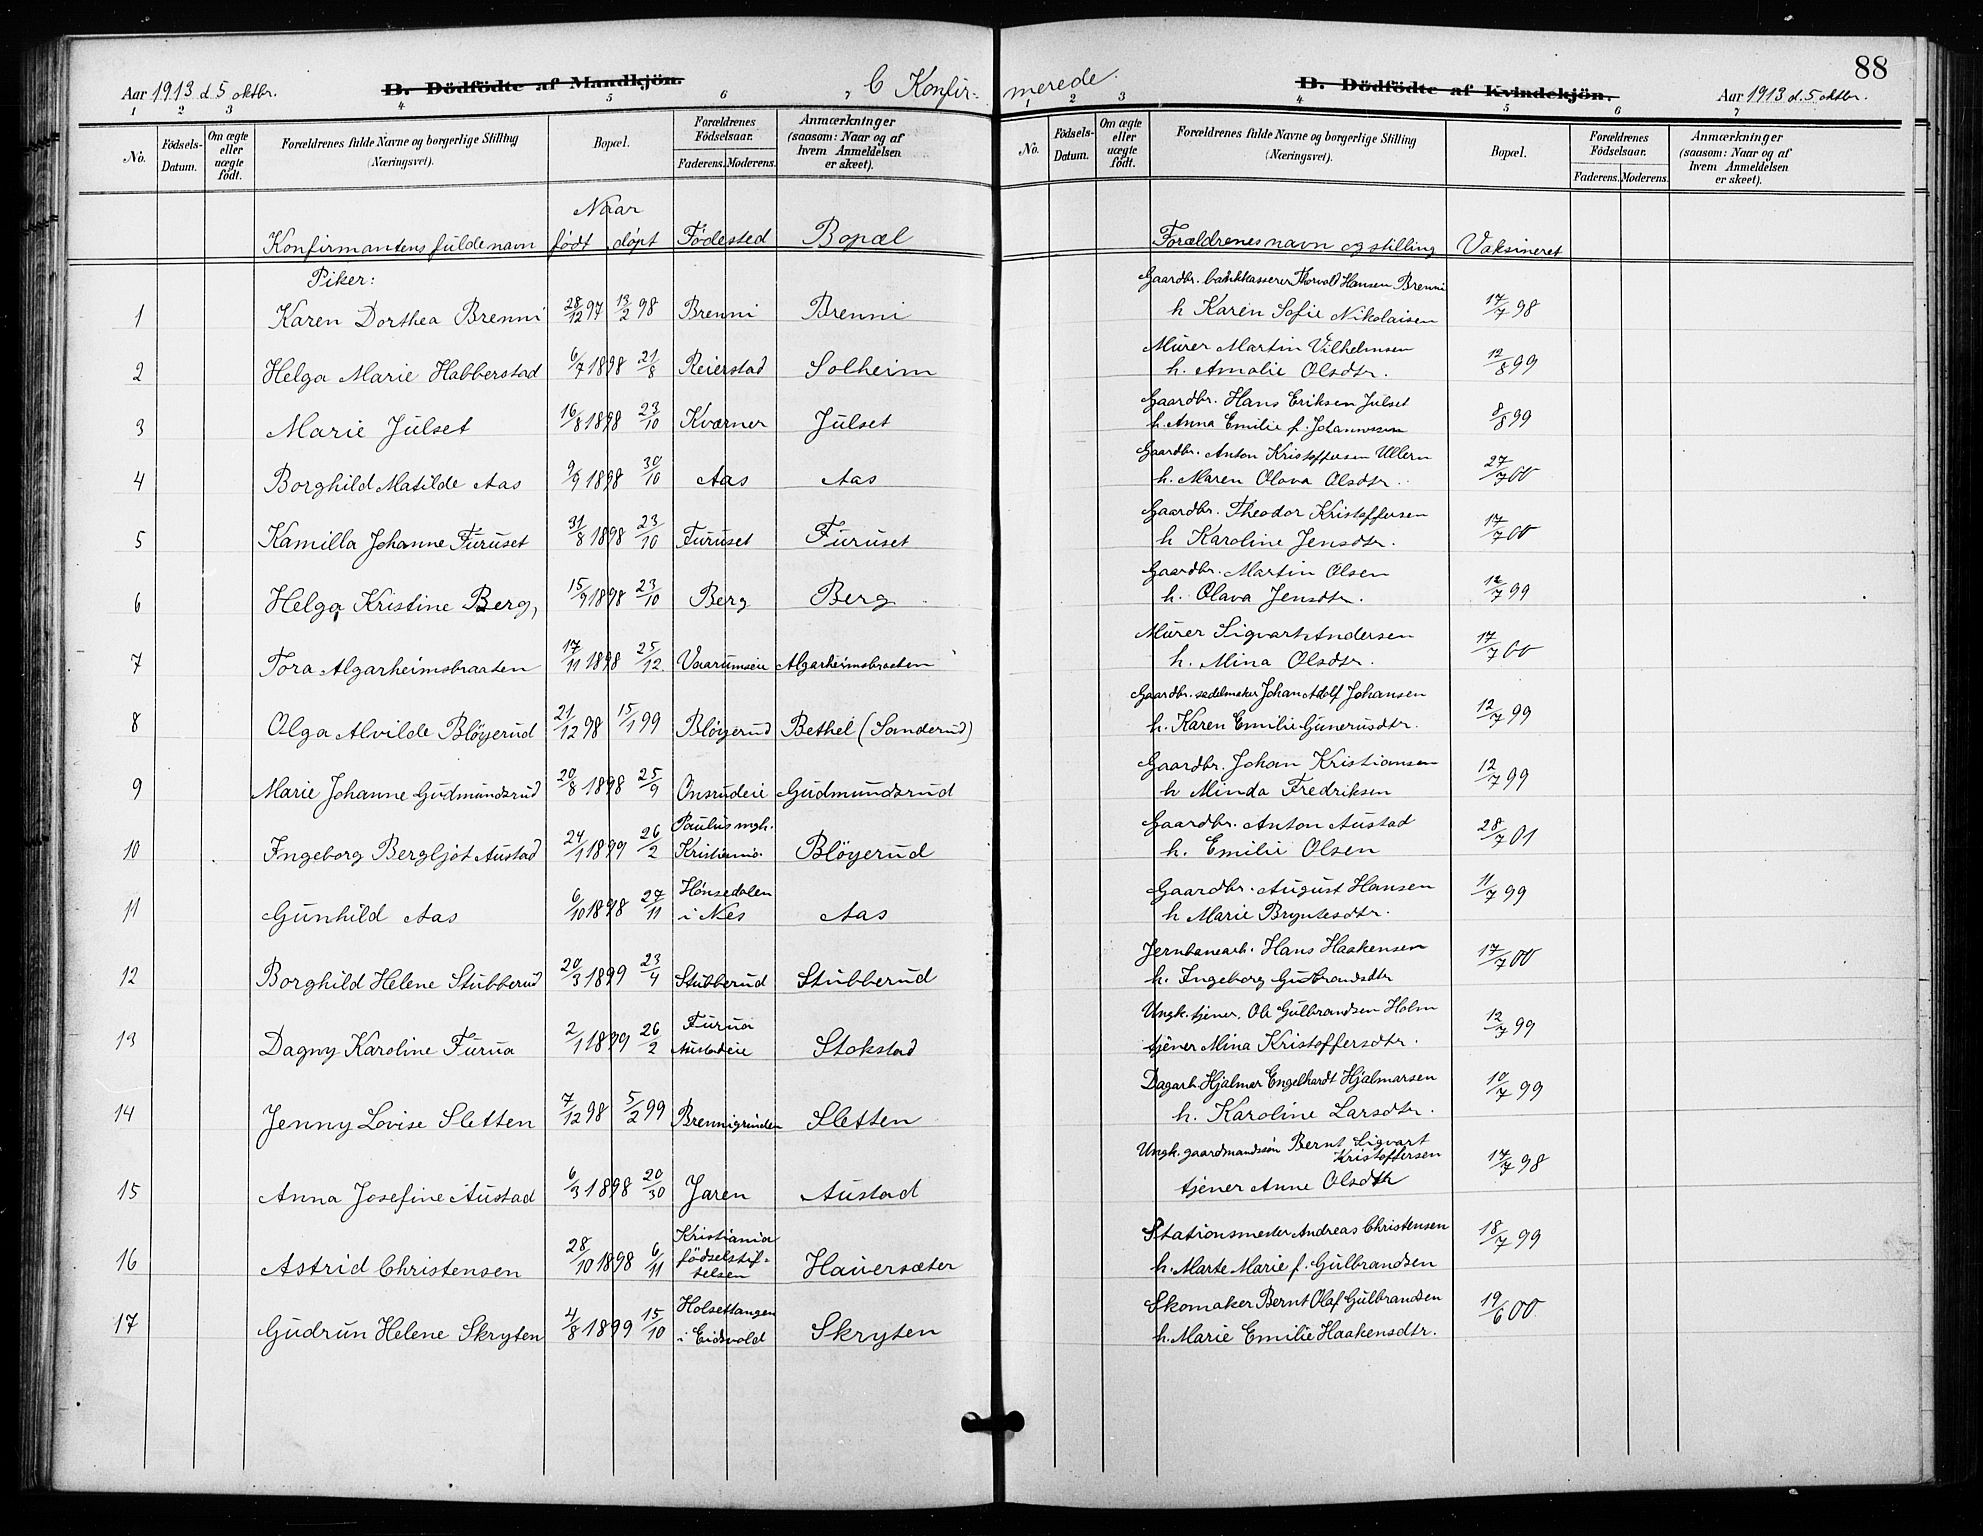 88
Aar 1913 d. 5 oktbr. B. Dödfödte af Mandkjön. C Konfir-
merede. B. Dödfödte af Kvindekjön. Aar 1913 d. 5 oktbr.
1 2 3 4 5 6 7
1 2 3 4 5 6 7
No. Födsels-Datum. Om ægte eller uægte födt. Forældrenes fulde Navne og borgerlige Stilling (Næringsvei). Bopæl. Forældrenes Födselsaar. Faderens. Moderens. Anmærkninger (saasom: Naar og af hvem Anmeldelsen er skeet).
No. Födsels-Datum. Om ægte eller uægte födt. Forældrenes fulde Navne og borgerlige Stilling (Næringsvei). Bopæl. Forældrenes Födselsaar. Faderens. Moderens. Anmærkninger (saasom: Naar og af hvem Anmeldelsen er skeet).
Naar
Konfirmantens fulde navn født døpt Fødested Bopæl Forældrenes navn og stilling Vaksineret
Piker:
Gaardbr. bankkasserer Thorvald Hansen Brenni
1 Karen Dorthea Brenni 28/12 97 13/2 98 Brenni Brenni h Karen Sofie Nikolaisen 17/7 98
Murer Martin Vilhelmsen
2 Helga Marie Habberstad 6/7 1898 21/8 Reierstad Solheim h. Amalie Olsdtr. 12/8 99
Gaardbr. Hans Eriksen Julset
3 Marie Julset 16/8 1898 23/10 Kværner Julset h. Anna Emilie f. Johannessen 8/8 99
Gaardbr. Anton Kristoffersen Ullern
4 Borghild Matilde Aas 9/9 1898 30/10 Aas Aas h. Maren Olava Olsdtr. 27/7 00
Gaardbr. Theodor Kristoffersen
5 Kamilla Johanne Furuset 31/8 1898 23/10 Furuset Furuset h Karoline Jensdtr. 17/7 00
Gaardbr. Martin Olsen
6 Helga Kristine Berg, 15/9 1898 23/10 Berg Berg h. Olava Jensdtr. 12/7 99
Murer Sigvart Andersen
7 Tora Algarheimsbraaten 17/11 1898 25/12 Vaarumseie Algarheimsbraaten h. Mina Olsdtr. 17/7 00
Gaardbr. sadelmaker Johan Adolf Johansen
8 Olga Alvilde Bløyerud 21/12 98 15/1 99 Bløyerud Bethel (Sanderud) h. Karen Emilie Gunerusdtr. 12/7 99
Gaardbr. Johan Kristiansen
9 Marie Johanne Gudmundsrud 20/8 1898 25/9 Onsrudeie Gudmundsrud h Minda Fredriksen 12/7 99
Paulus mgh. Gaardbr. Anton Austad
10 Ingeborg Bergljot Austad 24/1 1899 26/2 Kristiania Bløyerud h. Emilie Olsen 28/7 01
Hønsedalen Gaardbr. August Hansen
11 Gunhild Aas 6/10 1898 27/11 i Nes Aas h Marie Bryntesdtr. 11/7 99
Jernbanearb. Hans Haakensen
12 Borghild Helene Stubberud 20/3 1899 23/4 Stubberud Stubberud h. Ingeborg Gudbrandsdtr 17/7 00
Furua Ungk. tjener. Ole Gulbrandsen Holm
13 Dagny Karoline Furua 2/1 1899 26/2 Austadeie Stokstad tjener Mina Kristoffersdtr. 12/7 99
Dagarb. Hjalmar Engelhardt Hjalmarsen
14 Jenny Lovise Sletten 7/12 98 5/2 99 Brennigrinden Sletten h. Karoline Larsdtr. 10/7 99
Ungk. gaardmandssøn Bernt Sigvart
Kristoffersen
15 Anna Josefine Austad 6/3 1898 20/30 Jaren Austad tjener Anne Olsdtr 14/7 98
Kristiania Stationsmester Andreas Christensen
16 Astrid Christensen 28/10 1898 6/11 fødselstif-telsen Hauersæter h. Marte Marie f. Gulbrandsen 18/7 99
Holsettangen Skomaker Bernt Olaf Gulbrandsen
17 Gudrun Helene Skryten 4/8 1899 15/10 i Eidsvold Skryten h. Marie Emilie Haakensdtr. 19/6 00